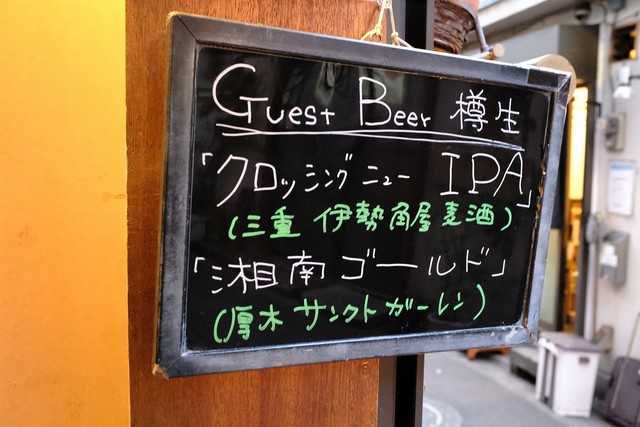 Guest Beer 樽生
「クロッシングニュー IPA」
(三重 伊勢角屋麦酒)
「湘南ゴールド」
(厚木 サンクトガーレン)